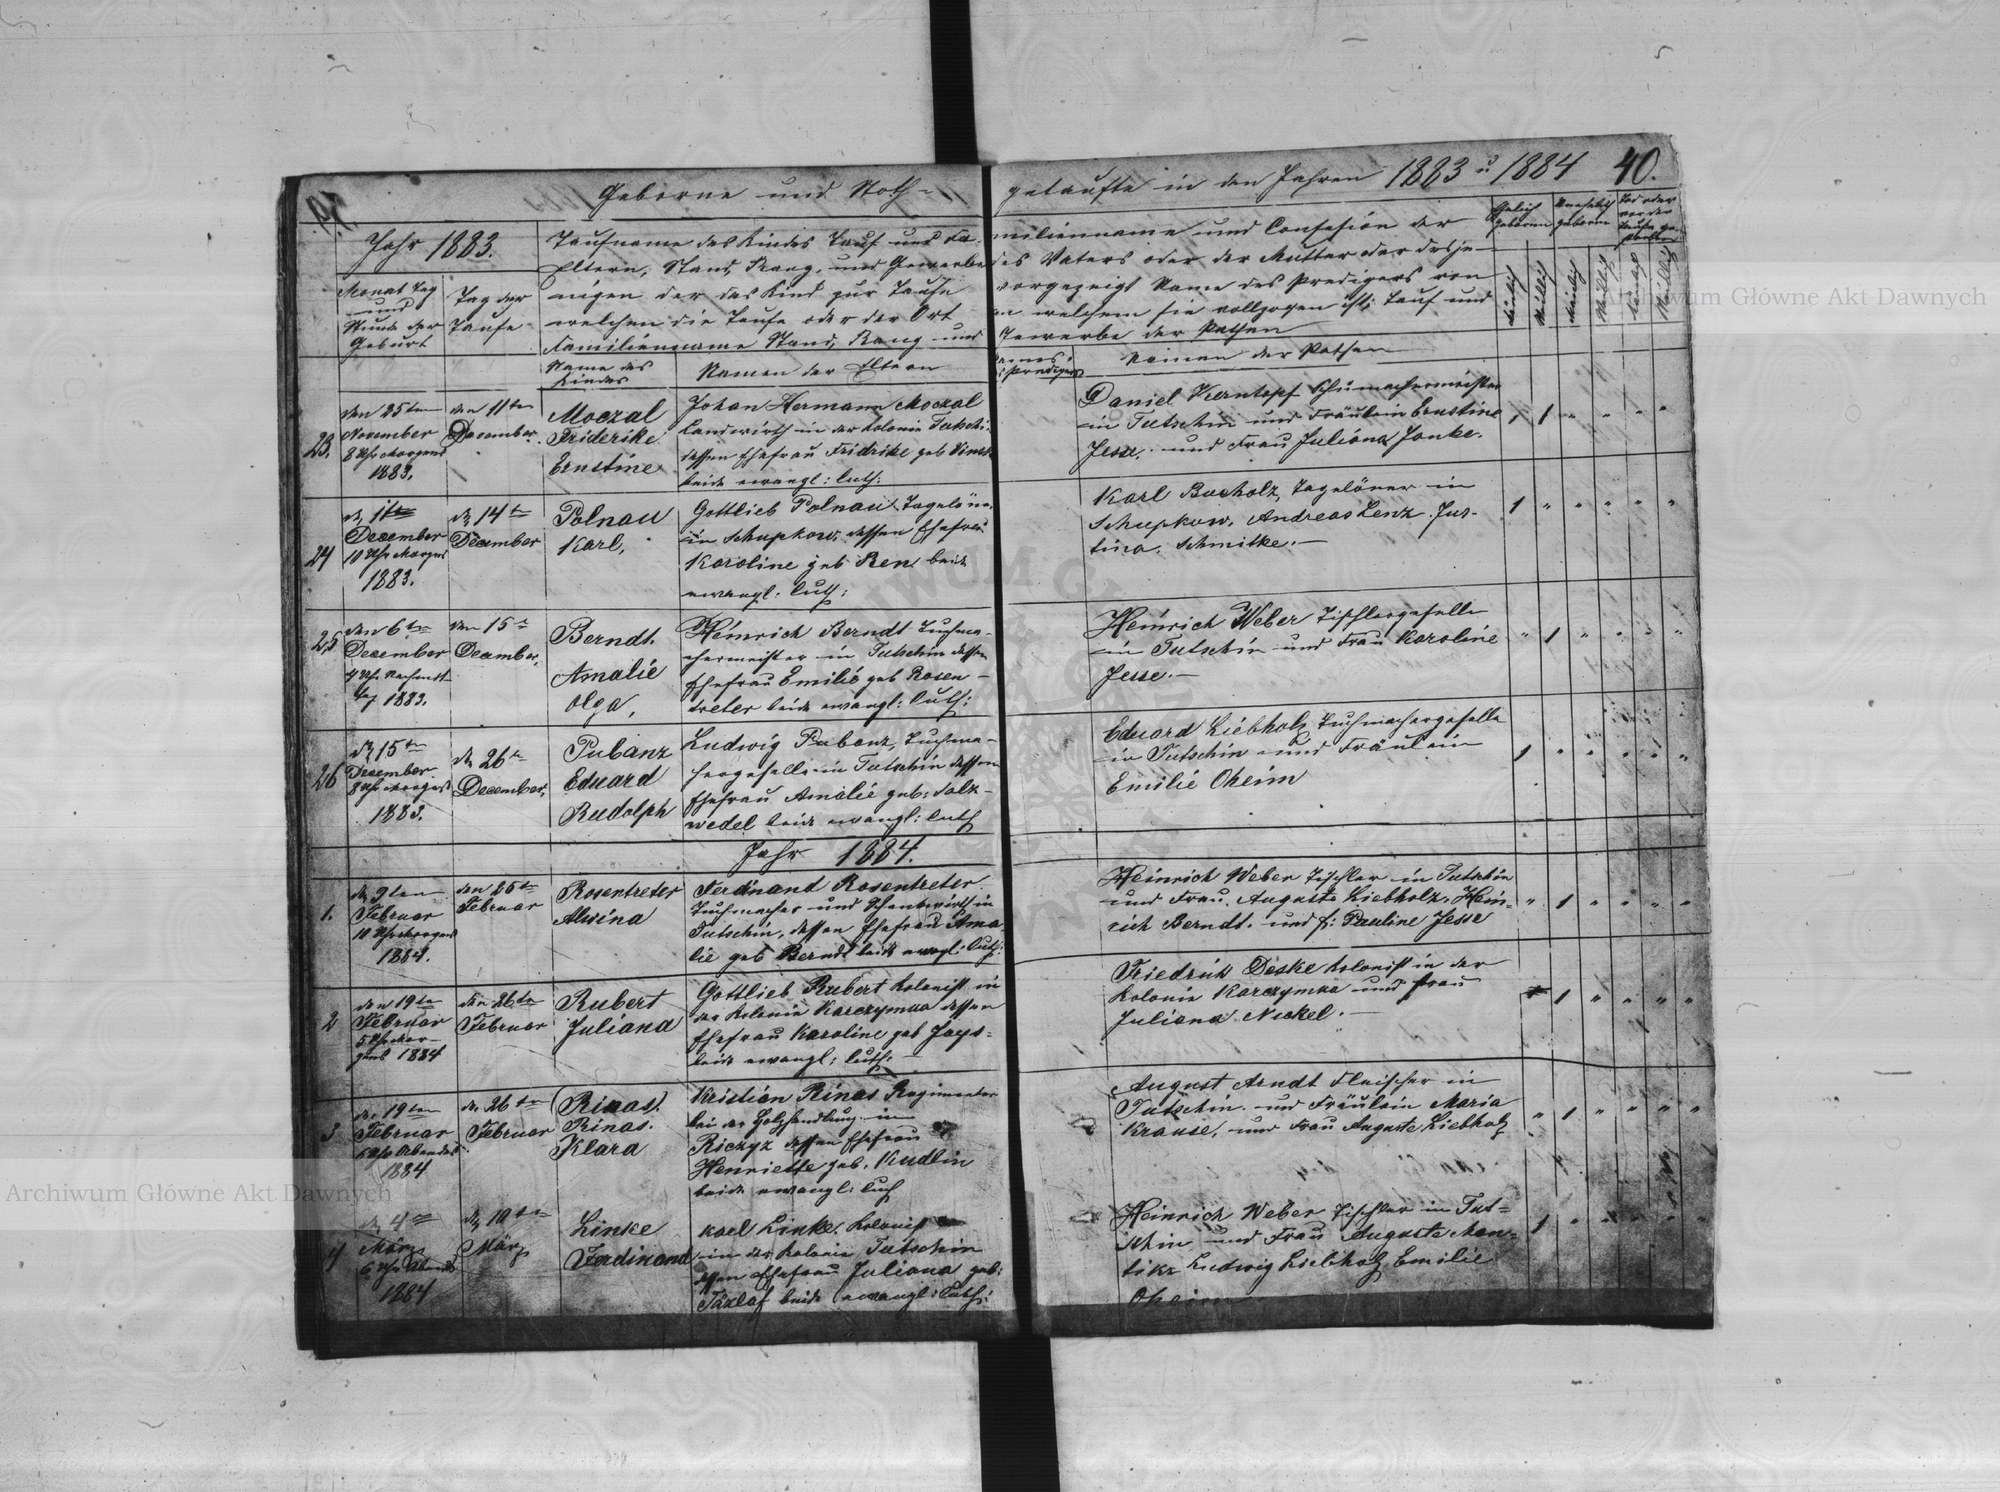 Geborne und Noth-
getaufte in den Jahren 1883 u 1884
40.
Jahr 1883.
Monat Tag
und
Stunde der
Geburt
Tag der
Taufe
Taufname des Kindes Tauf und Fa-
milienname und Confession der
Eltern, Stand, Rang, und Gewerbe
des Vaters oder der Mutter oder desje-
nigen der das Kind zur Taufe
vorgezeigt Name des Predigers von
welchen die Taufe oder der Ort
in welchem sie vollzogen ist; Tauf und
Familienname Stand, Rang und
Gewerbe der Pathen
Ehelich
geboren
Unehelich
geboren
Name des
Kindes
Namen der Eltern
Namen der Pathen
23.
den 25ten
November
8 Uhr Morgens
1883.
den 11ten
December.
Moczal
Friderike
Ernstine
Johan Hermann Moczal
Landwirth in der Kolonie Tutschi-
dessen Ehefrau Fridrike geb
beide evangl: luth:
Daniel Kerntopf Schumachermeister
in Tutschin und Fräulein Ernstine
Jesse. und Frau Juliana Janke.
24
d. 1ten
December
10 Uhr Morgens
1883.
d. 14ten
December
Polnau
Karl.
Gottlieb Polnau Tagelöne.
in Schupkow dessen Ehefrau
Karoline geb Ren beide
evangl: luth:
Karl Bucholz, Tagelöner in
Schupkow, Andreas Lenz Jus-
tina. Schmitke.—
25
den 6ten
December
4 Uhr Nachmit
tag 1883.
den 15t
December,
Berndt
Amalie
Olga,
Heinrich Berndt Tuchma-
chermeister in Tutschin dessen
Ehefrau Emilie geb Rosen-
treter beide evangl: luth:
Heinrich Weber Tischlergeselle
in Tutschin und Frau Karoline
Jesse.—
26
d. 15ten
December
8 Uhr Morgens
1883.
d. 26t
December,
Pubanz
Eduard
Rudolph
Ludwig Pubanz, Tuchma-
chergeselle in Tutschin dessen
Ehefrau Amalie geb: Salz-
wedel beide evangl: luth
Eduard Liebholz Tuchmachergeselle
in Tutschin und Fräulein
Emilie Oheim
Jahr 1884.
1.
d. 9ten
Februar
10 Uhr Morgens
1884.
den 25ten
Februar
Rosentreter
Alwina
Ferdinand Rosentreter
Tuchmacher und Schenkwirth in
Tutschin, dessen Ehefrau Ama-
lie geb Berndt beide evangl: luth:
Heinrich Weber Tischler in Tutschin
und Frau Auguste Liebholz, Hein-
rich Berndt. und f: Pauline Jesse
2
den 19ten
Februar
5 Uhr Mor-
gens 1884
den 26ten
Februar
Rubert
Juliana
Gottlieb Rubert Kolonist in
der Kolonie Karczymka dessen
Ehefrau Karoline geb
beide evangl: luth:
Friedrich Deske Kolonist in der
Kolonie Karczymka und Frau
Juliana Nickel.—
3
d. 19ten
Februar
Uhr Abendes
1884
d. 26ten
Februar
Rinas.
Rinas.
Klara
Kristian Rinas Regimenter
bei der Holzhandlung in
Riczyz dessen Ehefrau
Henriette geb. Kudlin
beide evangl: luth
August Arndt Fleischer in
Tutschin und Fräulein Maria
Krause, und Frau Auguste Liebholz
4
d. 4ten
März
6 Uhr Abends
1884
d. 10ten
März
Linke
Ferdinand
Karl Linke, Kolonist
in der Kolonie Tutschin
dessen Ehefrau Juliana geb:
beide evangl: luth:
Heinrich Weber Tischler in Tut-
schin und Frau Auguste Man-
tike Ludwig Liebholz Emilie
Oheim
Archiwum Główne Akt Dawnych
Archiwum Główne Akt Dawnych